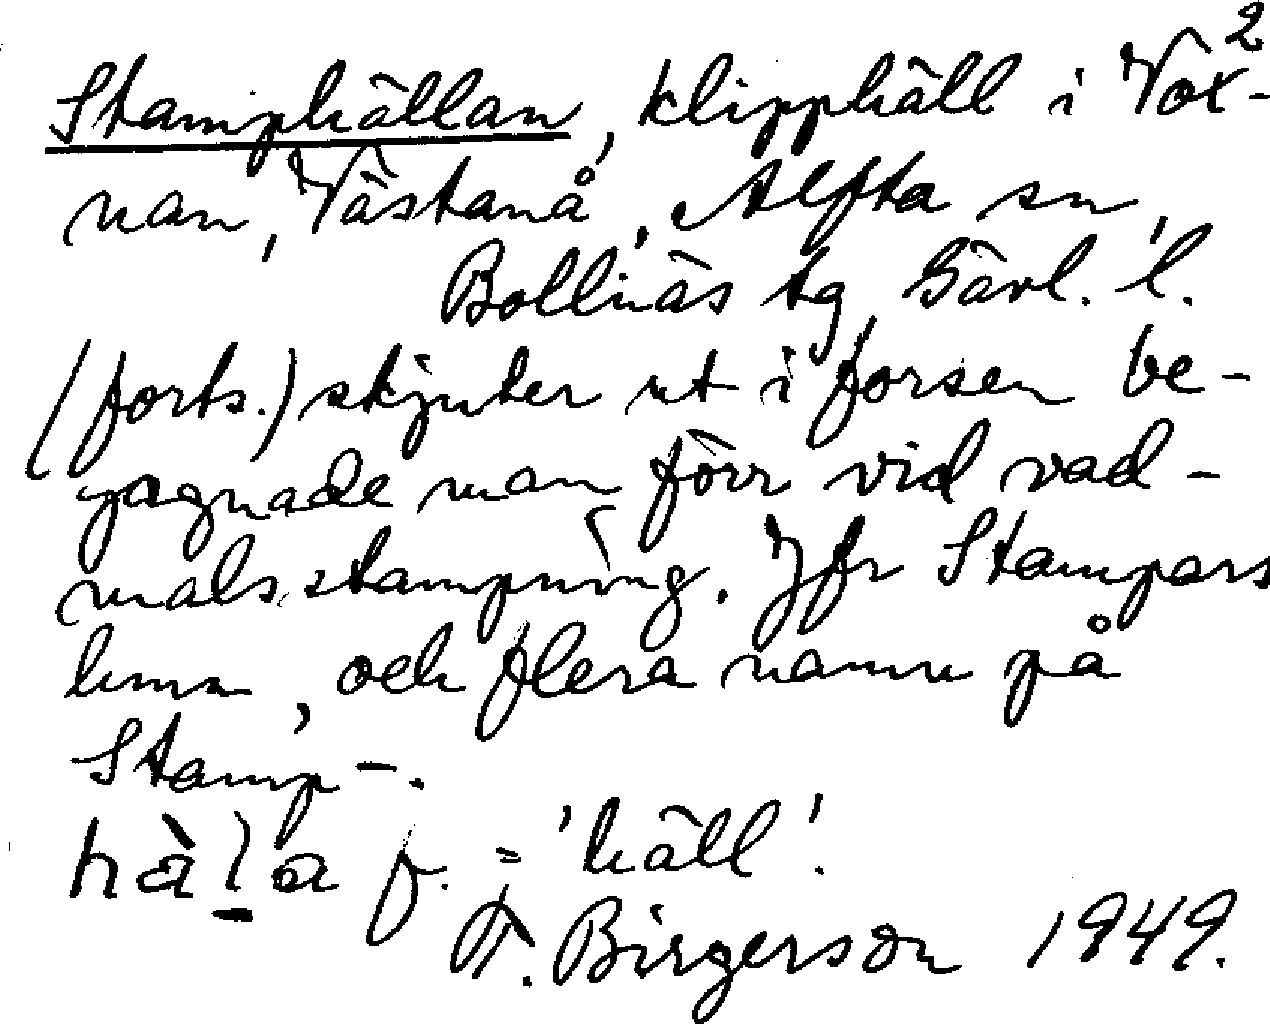 2
Stamphällan, klipphäll i Vox-
nan, Västanå, Alfta sn,
Bollnäs tg, Gävl. l.
(forts.) skjuter ut i forsen be-
gagnade man förr vid vad-
malsstampning. Jfr Stampars
lunn, och flera namn på
Stamp-.
hàl̠a f. = 'häll'.
F. Birgerson 1949.